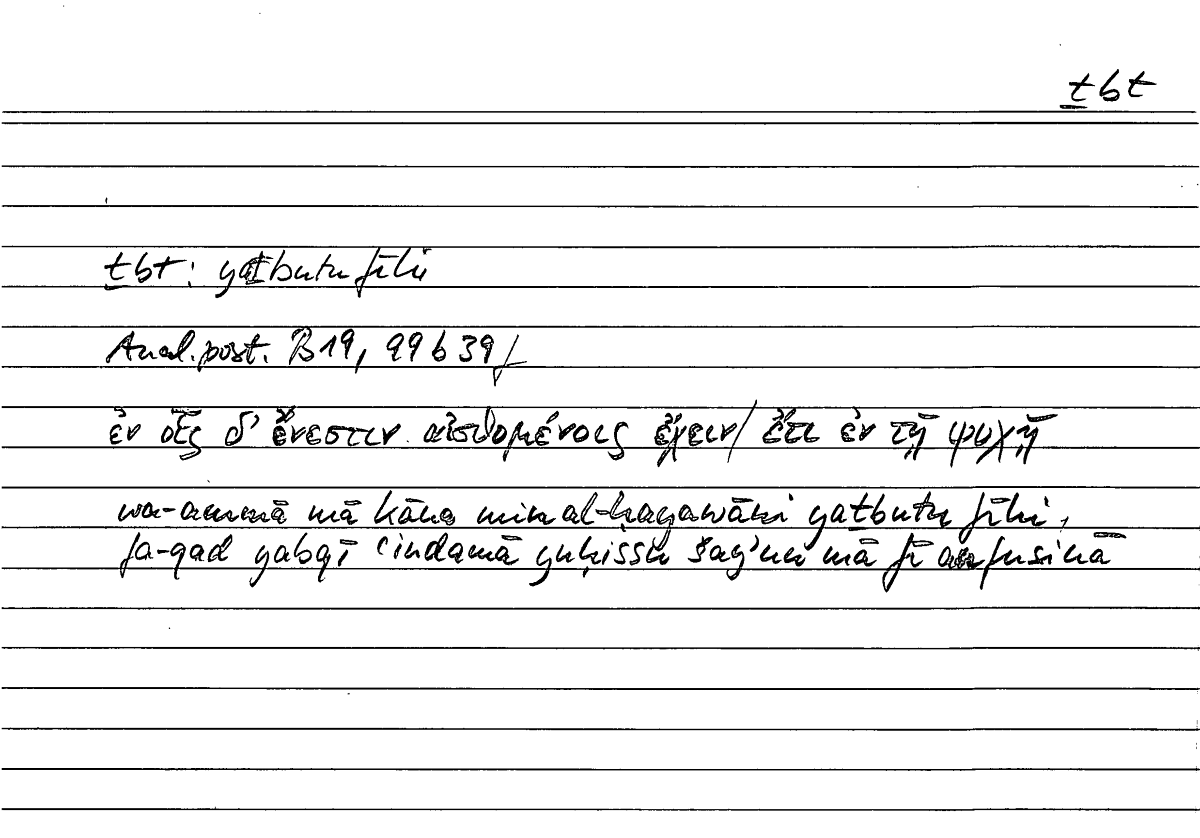 ṯbt
ṯbt: yaṯbutu fīhi
Anal. post. B 19, 99 b 39 f
ἐν οἷς δ' ἔνεστιν αἰσθομένοις ἔχειν / ἔτι ἐν τῇ ψυχῇ
wa-ammā mā kāna min al-ḥayawāni yaṯbutu fīhi,
fa-qad yabqī ʿindamā yuḥissu šayʾun mā fī anfusihā